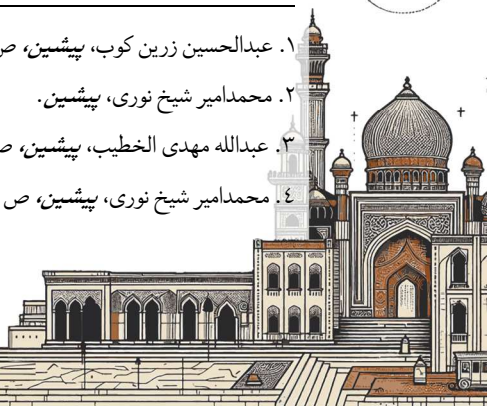 ۱. عبدالحسین زرین کوب، پیشین، ص
۲. محمدامیر شیخ نوری، پیشین.
۳. عبدالله مهدی الخطیب، پیشین، ص
٤. محمدامیر شیخ نوری، پیشین، ص